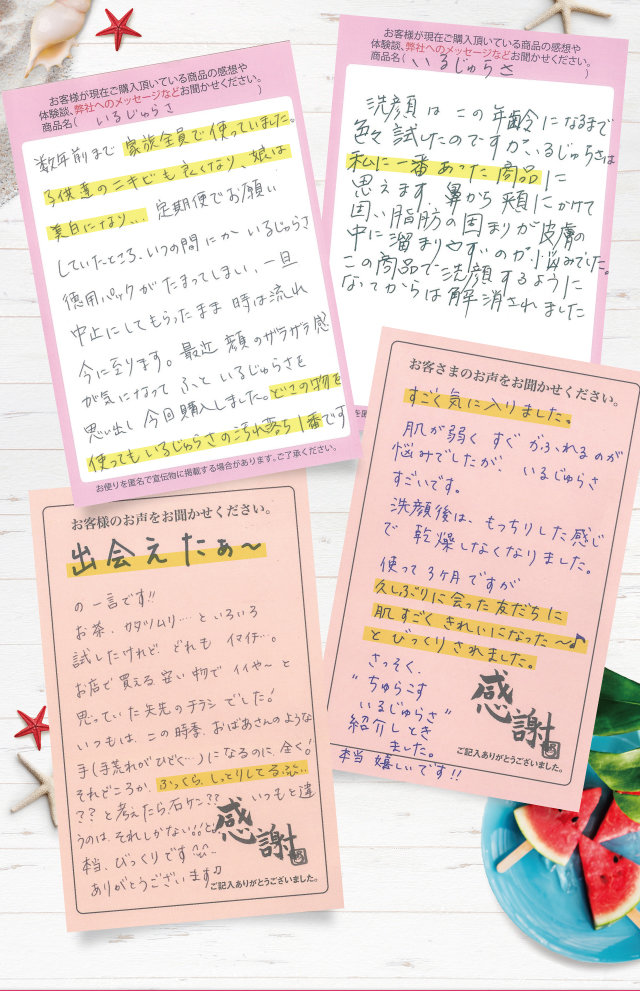 お客様が現在ご購入頂いている商品の感想や
体験談、弊社へのメッセージなどお聞かせください。
商品名( いるじゅらさ )
数年前まで 家族全員で使っていました。
子供達のニキビも良くなり、娘は
美白になり... 定期便でお願い
していたところ、いつの間にか いるじゅらさ
徳用パックがたまってしまい、一旦
中止にしてもらったまま 時は流れ
今に至ります。最近 顔のザラザラ感
が気になって ふと いるじゅらさを
思い出し 今回購入しました。どこの物を
使っても いるじゅらさの汚れ落ち1番です
お便りを匿名で宣伝物に掲載する場合があります。ご了承ください。
お客様が現在ご購入頂いている商品の感想や
体験談、弊社へのメッセージなどお聞かせください。
商品名( いるじゅらさ )
洗顔はこの年齢になるまで
色々試したのですが、いるじゅらさは
私に一番あった商品に
思えます。鼻から頬にかけて
固い脂肪の固まりが皮膚の
中に溜まりやすいのが悩みでした。
この商品で洗顔するように
なってからは解消されました
お客さまのお声をお聞かせください。
すごく気に入りました。
肌が弱く すぐ かぶれるのが
悩みでしたが、いるじゅらさ
すごいです。
洗顔後は、もっちりした感じ
で 乾燥しなくなりました。
使って3ヶ月ですが
久しぶりに会った友だちに
肌すごくきれいになった〜♪
とびっくりされました。
さっそく、
"ちゅらこす
いるじゅらさ"
紹介しとき
ました。
本当 嬉しいです!!
感謝
ご記入ありがとうございました。
お客様のお声をお聞かせください。
出会えたぁ〜
の一言です!!
お茶、カタツムリ…といろいろ
試したけれど、どれも イマイチ…。
お店で買える安い物で イイや〜と
思っていた矢先のチラシ でした!
いつもは、この時季、おばあさんのような
手(手荒れがひどく…)になるのに、全く!
それどころか、ふっくら、しっとりしてる…
??と考えたら、石ケン?? いつもと違
うのは、それしかない!!と
本当、びっくりです^^
ありがとうございます♪
感謝
ご記入ありがとうございました。